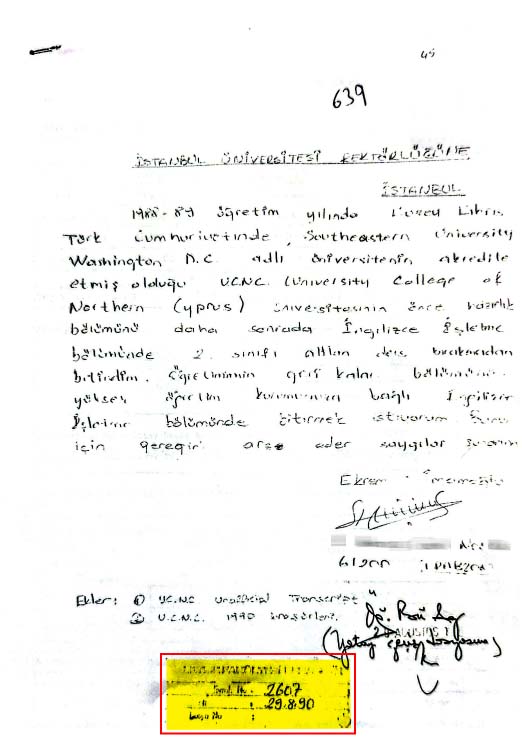 45
639
İSTANBUL ÜNİVERSİTESİ REKTÖRLÜĞÜNE
İSTANBUL
1988-89 öğretim yılında Kuzey Kıbrıs
Türk Cumhuriyetinde, Southeastern University
Washington D.C adlı üniversitenin akredite
etmiş olduğu U.C.N.C. (University College of
Northern Cyprus) üniversitesinin önce hazırlık
bölümünü daha sonrada İngilizce İşletme
bölümünde 2. sınıfı alttan ders bırakmadan
bitirdim. Öğrenimimin geri kalan bölümünü
yüksek öğretim kurumuna bağlı İngilizce
İşletme bölümünde bitirmek istiyorum
için gereğini arz eder saygılar sunarım
Ekrem İmamoğlu
No:
61200 TRABZON
Ekler: 1 U.C.N.C Unofficial Transcript
2 U.C.N.C. 1990
AĞUSTOS
(Yatay geçiş dosyasına)
2607
29.8.90